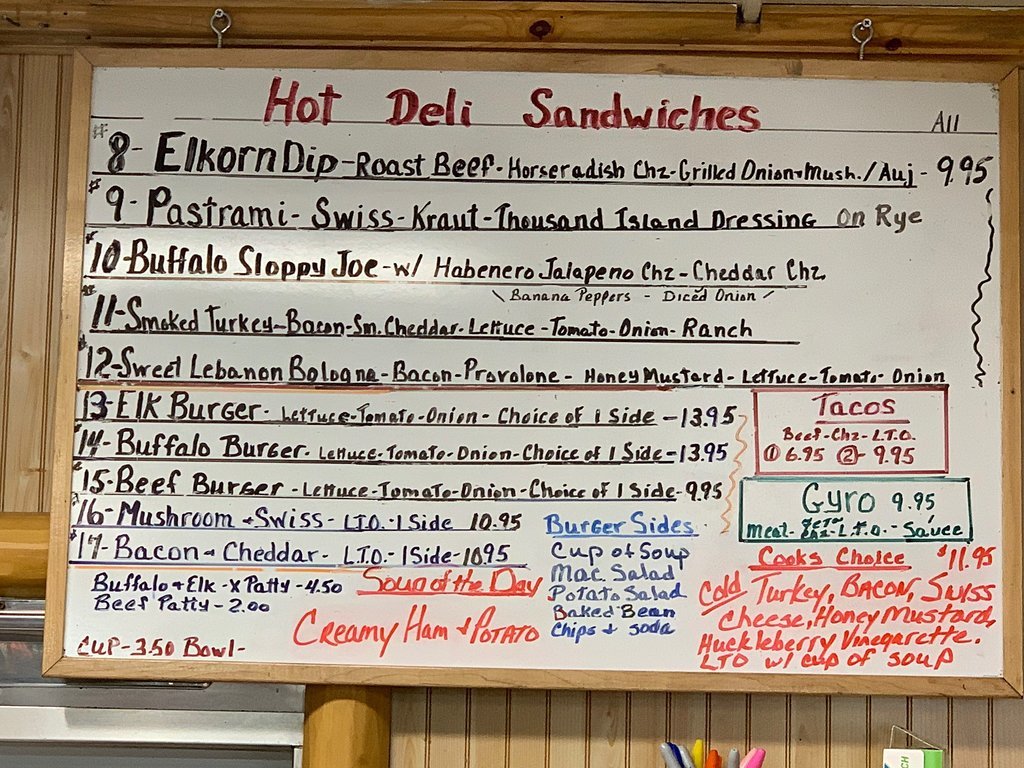 Hot Deli Sandwiches
All
#8- Elkorn Dip-Roast Beef-Horseradish Chz-Grilled Onion+Mush./Auj- 9.95
#9- Pastrami- Swiss-Kraut-Thousand Island Dressing On Rye
#10-Buffalo Sloppy Joe-w/ Habenero Jalapeno Chz-Cheddar Chz
\ Banana Peppers - Diced Onion /
#11-Smoked Turkey-Bacon-Sm.Cheddar-Lettuce-Tomato-Onion-Ranch
#12-Sweet Lebanon Bologna-Bacon-Provolone-Honey Mustard-Lettuce-Tomato-Onion
13-Elk Burger- Lettuce-Tomato-Onion-Choice of 1 Side -13.95
#14-Buffalo Burger- Lettuce-Tomato-Onion-Choice of 1 Side-13.95
#15-Beef Burger-Lettuce-Tomato-Onion-Choice of 1 Side-9.95
#16-Mushroom +Swiss- L.T.O.-1 Side 10.95
#17-Bacon+Cheddar- L.T.O.-1Side-10.95
Buffalo+Elk-X Patty-4.50
Beef Patty-2.00
Soup of the Day
Creamy Ham + Potato
Cup-3.50 Bowl-
Burger Sides
Cup of Soup
Mac Salad
Potato Salad
Baked Bean
Chips + soda
Tacos
Beef-Chz-L.T.O.
① 6.95 ② - 9.95
Gyro 9.95
Meat-Feta Chz-L.T.O.-Sauce
Cooks Choice $11.95
Cold Turkey, Bacon, Swiss
Cheese, Honey Mustard,
Huckleberry Vinegarette.
LTO w/ cup of soup